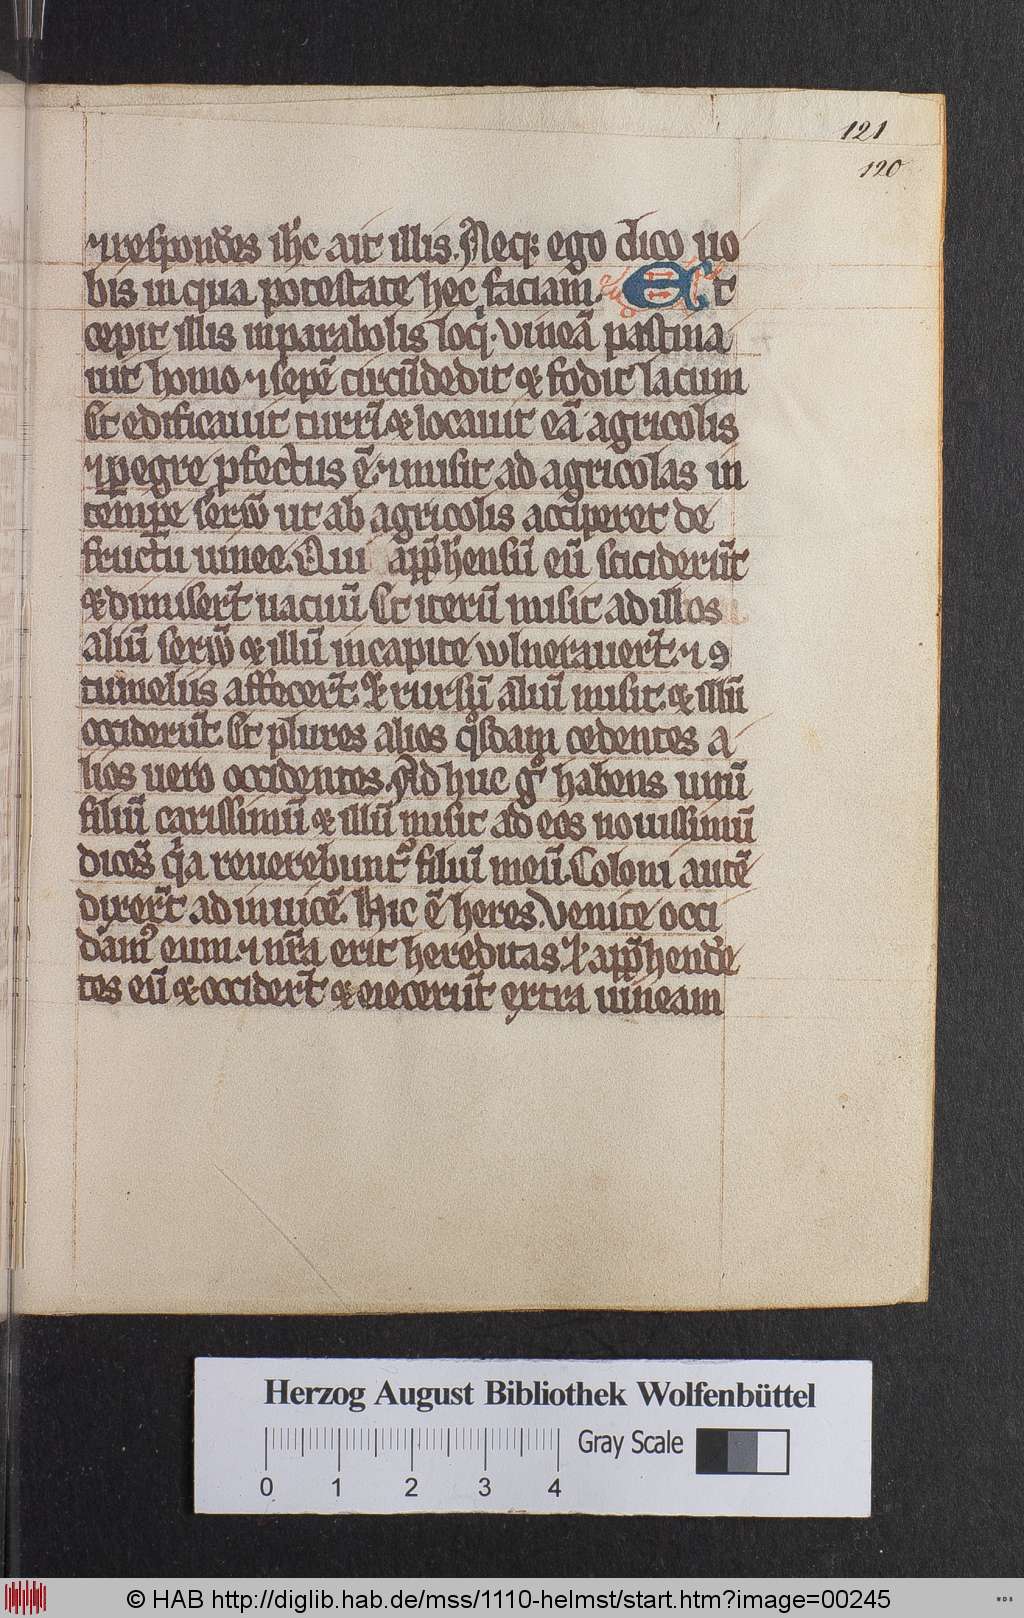 121
120
⁊ respondēs ih̄c ait illis. Neq; ego dico uo
bis in qua potestate hec faciam. Et
cepit illis in parabolis loqͥ. vineā pastina
uit homo ⁊ sepē circūdedit & fodit lacum
Et edificauit turrī & locauit eā agricolis
⁊ pegre pfectus ē. ⁊ misit ad agricolas in
tēmpe seruū ut ab agricolis acciperet de
fructu uinee. Qui app̄hensū eū sciciderūt
& dimiserūt uacuū Et iterū misit ad illos
aliū seruū & illū in capite wlnerauert̄. ⁊ ꝯ
tumeliis affecert̄. Et rursū aliū misit. & illū
occiderūt. Et plures alios qͦsdam cedentes a
lios uero occidentes. Ad huc gͦ habens unū
filiū carissimū & illū misit ad eos nouissimū
dicēs qͥa reuerebuntᷣ filiū meū. Coloni autē
dixert̄ ad inuicē. Hic ē heres. Venite occi
damꝰ eum. ⁊ nr̄a erit hereditas. Et app̄henden
tes eū & occidert̄ & eiecerūt extra uineam
Herzog August Bibliothek Wolfenbüttel
0 1 2 3 4 Gray Scale
© HAB http://diglib.hab.de/mss/1110-helmst/start.htm?image=00245